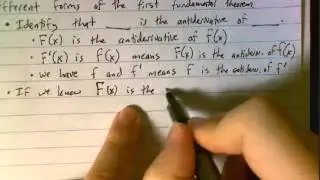 fferent forms of the first fundamental theorem
• Identify that ___ is the antiderivative of ___
• F(x) is the antiderivative of f(x)
• F'(x) is f(x) means F(x) is the antideriv. of f(x)
• we have f and f' means f is the antideriv. of f'
• If we know F(x) is the